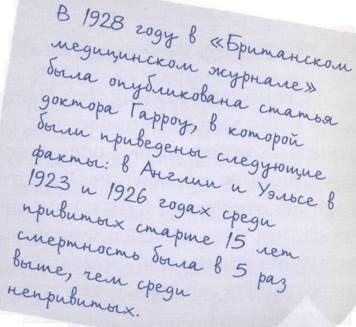 В 1928 году в «Британском
медицинском журнале»
была опубликована статья
доктора Гарроу, в которой
были приведены следующие
факты: в Англии и Уэльсе в
1923 и 1926 годах среди
привитых старше 15 лет
смертность была в 5 раз
выше, чем среди
непривитых.